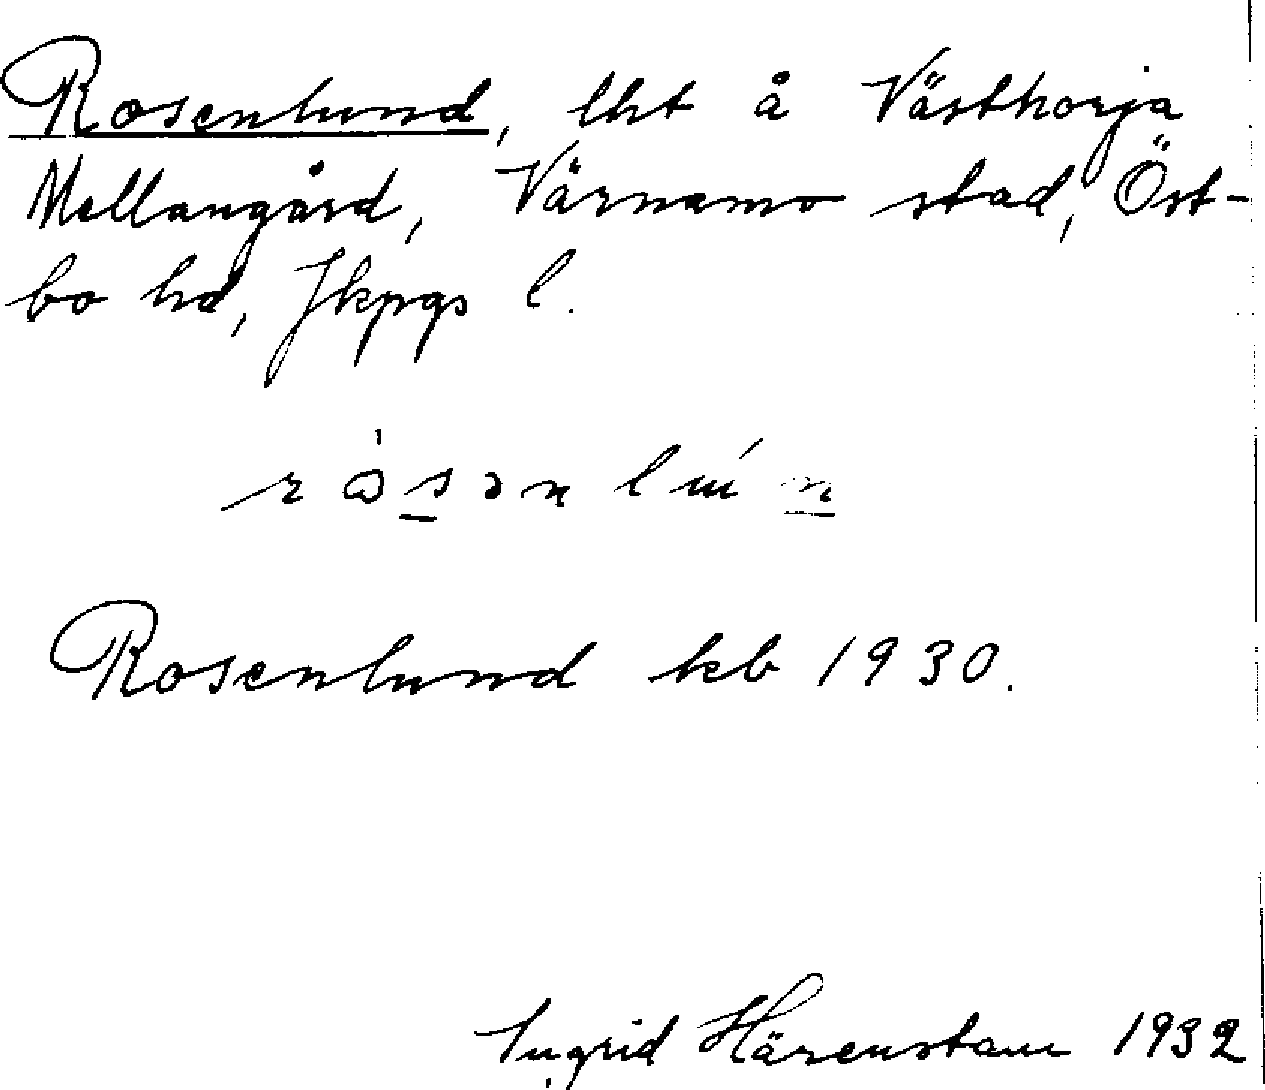 Rosenlund, lht å Västhorja
Mellangård, Värnamo stad, Öst-
bo hd, Jkpgs l.
Rosenlund kb 1930.
Ingrid Härenstam 1932